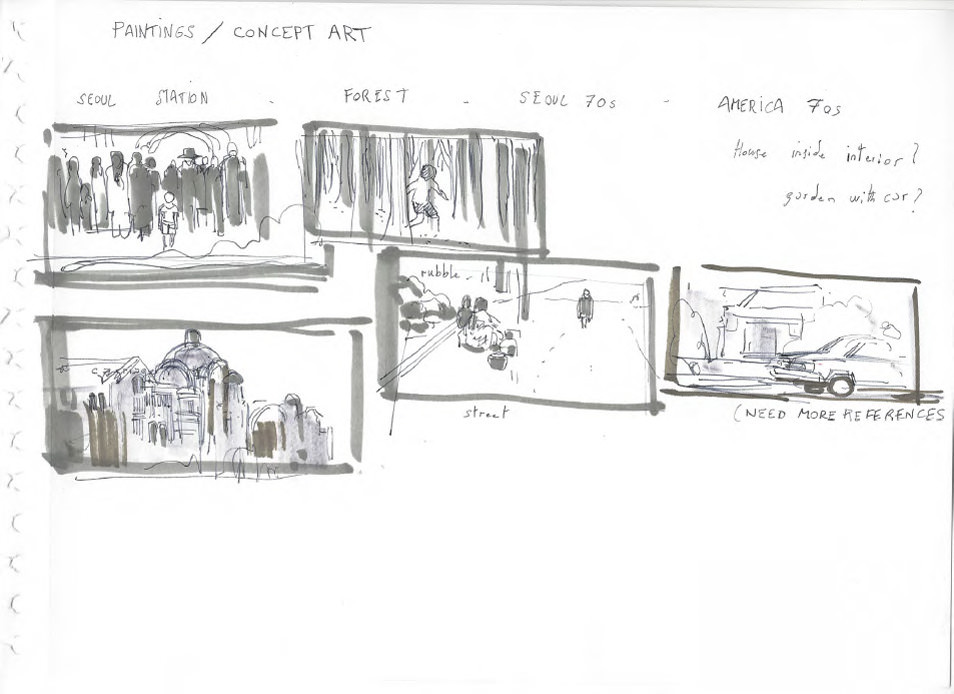 PAINTINGS / CONCEPT ART
SEOUL STATION - FOREST - SEOUL 70s - AMERICA 70s
House inside interior?
garden with car?
rubble
street
(NEED MORE REFERENCES